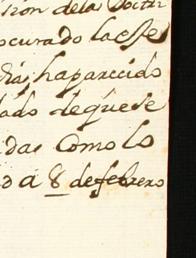 sion dela Doctri
ocurado laesse
dia, haparecido
lado deq̃uese
idas Como lo
o a 8 de febrero